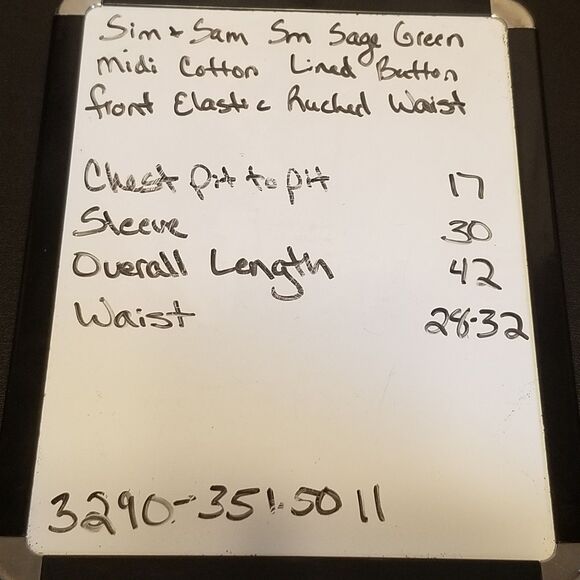 Sim & Sam Sm Sage Green
midi Cotton Lined Button
front Elastic Ruched Waist
Chest pit to pit 17
Sleeve 30
Overall Length 42
Waist 28-32
3290-351.50 11